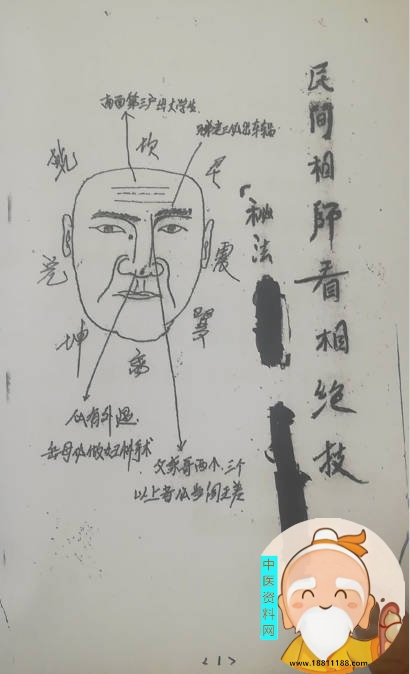 民间相师看相绝技
「秘法
南面第三户出大学生
兄弟定三仏出车祸
乾
坎
艮
兑
震
坤
离
巽
仏有外遇
岳母仏做妇科手术
父家哥两个、三个
以上者仏
中医资料网
www.18811188.com
<1>